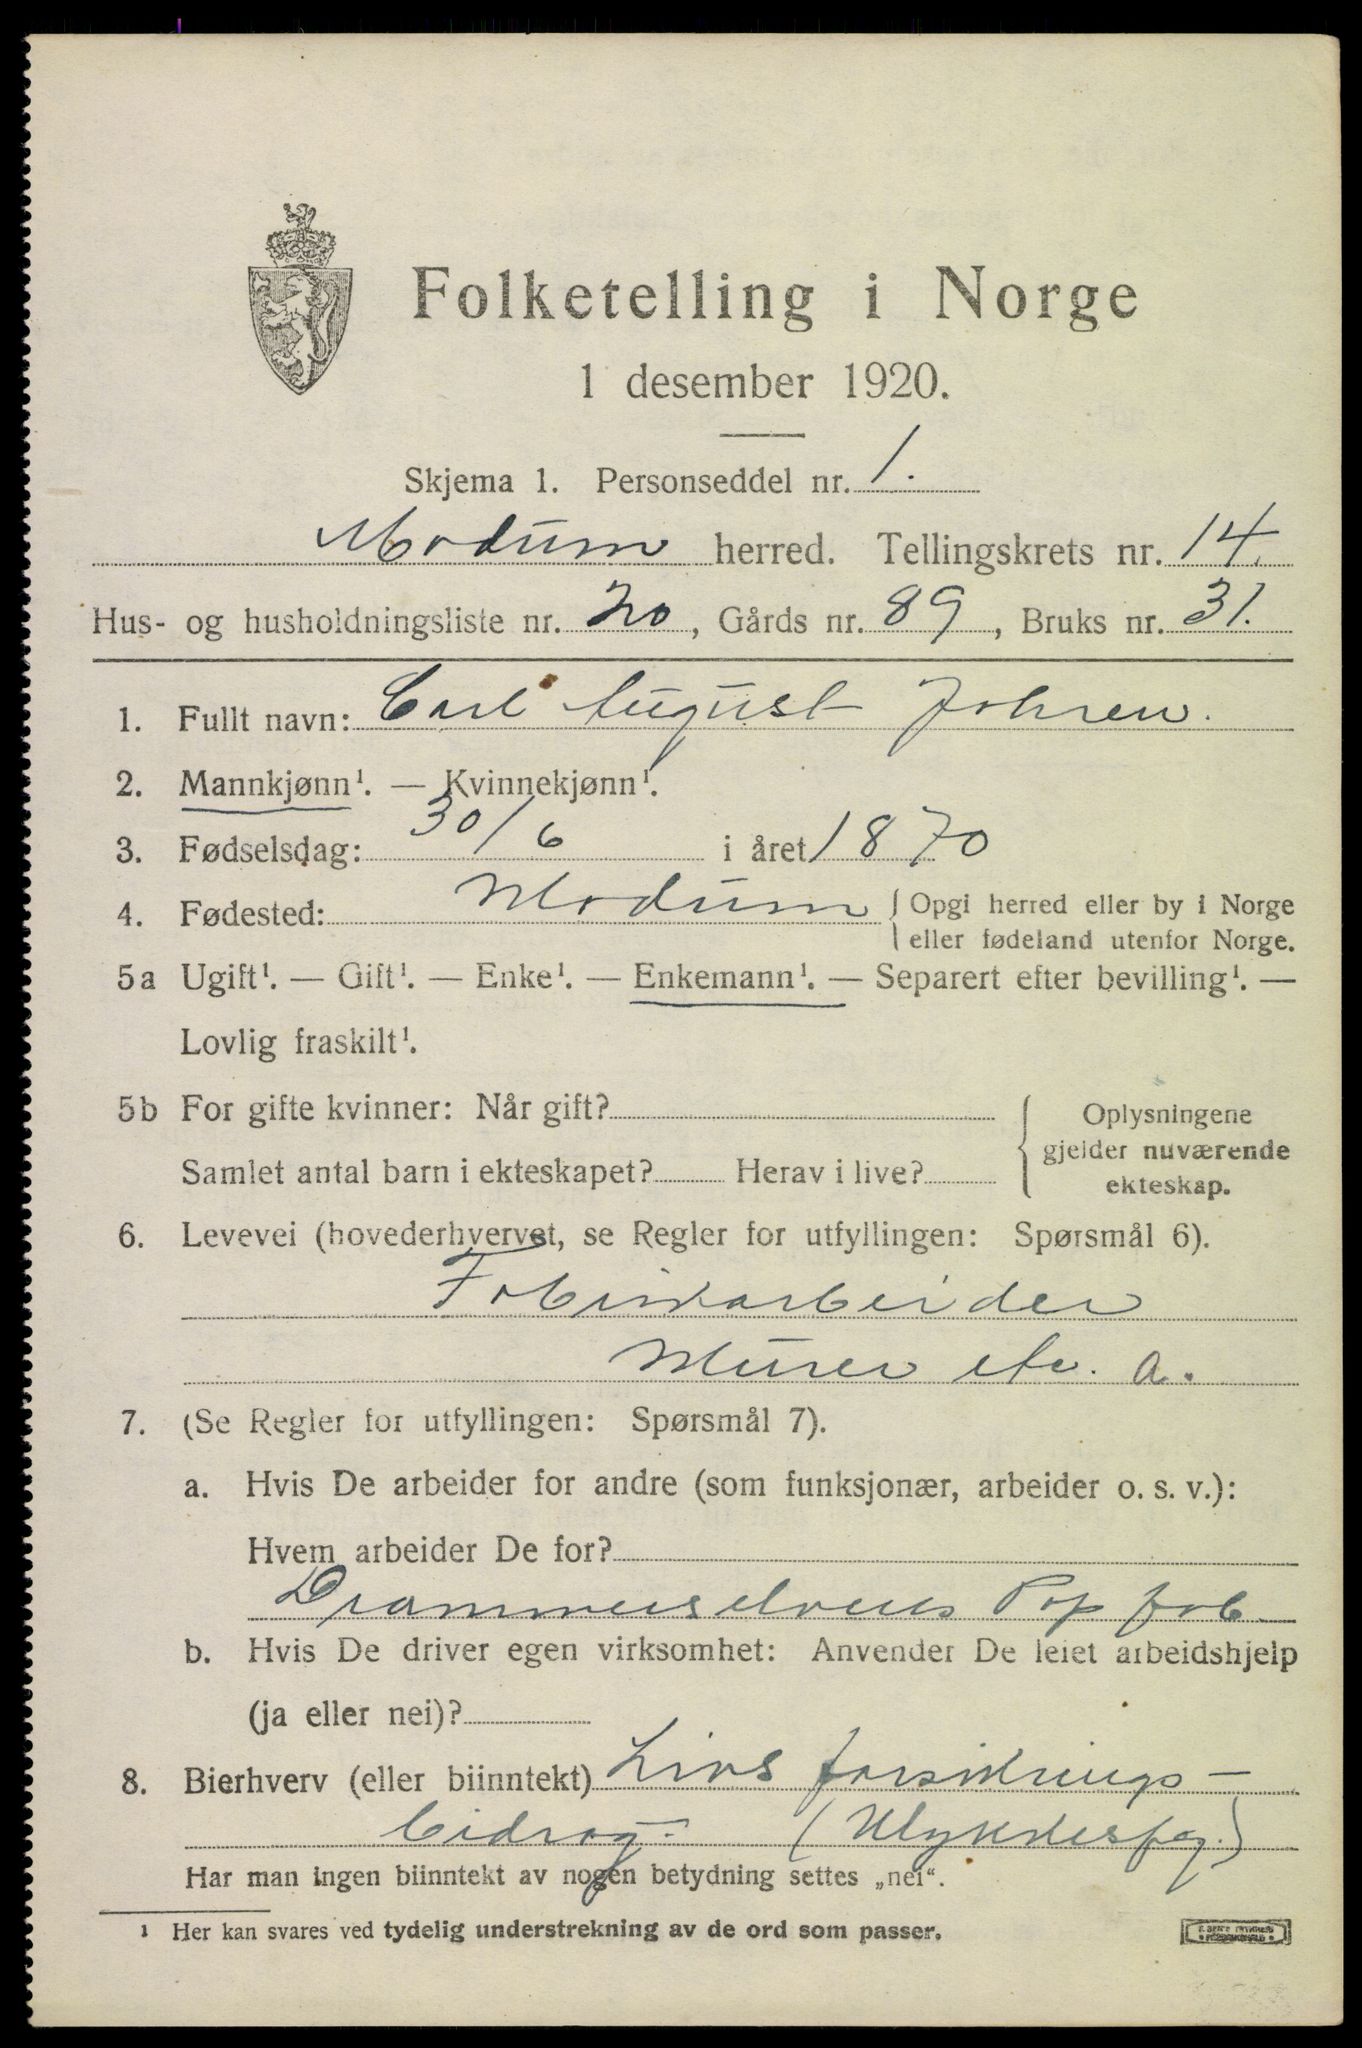 Folketelling i Norge
1 desember 1920.
Skjema 1. Personseddel nr. 1.
Modum herred. Tellingskrets nr. 14.
Hus- og husholdningsliste nr. 20, Gårds nr. 89, Bruks nr. 31.
1. Fullt navn: Carl August Johsen.
2. Mannkjønn¹. — Kvinnekjønn¹.
3. Fødselsdag: 30/6 i året 1870
4. Fødested: Modum { Opgi herred eller by i Norge
eller fødeland utenfor Norge.
5a Ugift¹. — Gift¹. — Enke¹. — Enkemann¹. — Separert efter bevilling¹. —
Lovlig fraskilt¹.
5b For gifte kvinner: Når gift? { Oplysningene
gjelder nuværende
Samlet antal barn i ekteskapet? Herav i live? ekteskap.
6. Levevei (hovederhvervet, se Regler for utfyllingen: Spørsmål 6).
Fabrikarbeider
Murer etc. a.
7. (Se Regler for utfyllingen: Spørsmål 7).
a. Hvis De arbeider for andre (som funksjonær, arbeider o. s. v.):
Hvem arbeider De for?
Drammenselvens Pap fab.
b. Hvis De driver egen virksomhet: Anvender De leiet arbeidshjelp
(ja eller nei)?
8. Bierhverv (eller biinntekt) Livsforsikrings-
bidrag. (Ulykkes
Har man ingen biinntekt av nogen betydning settes „nei“.
¹ Her kan svares ved tydelig understrekning av de ord som passer.